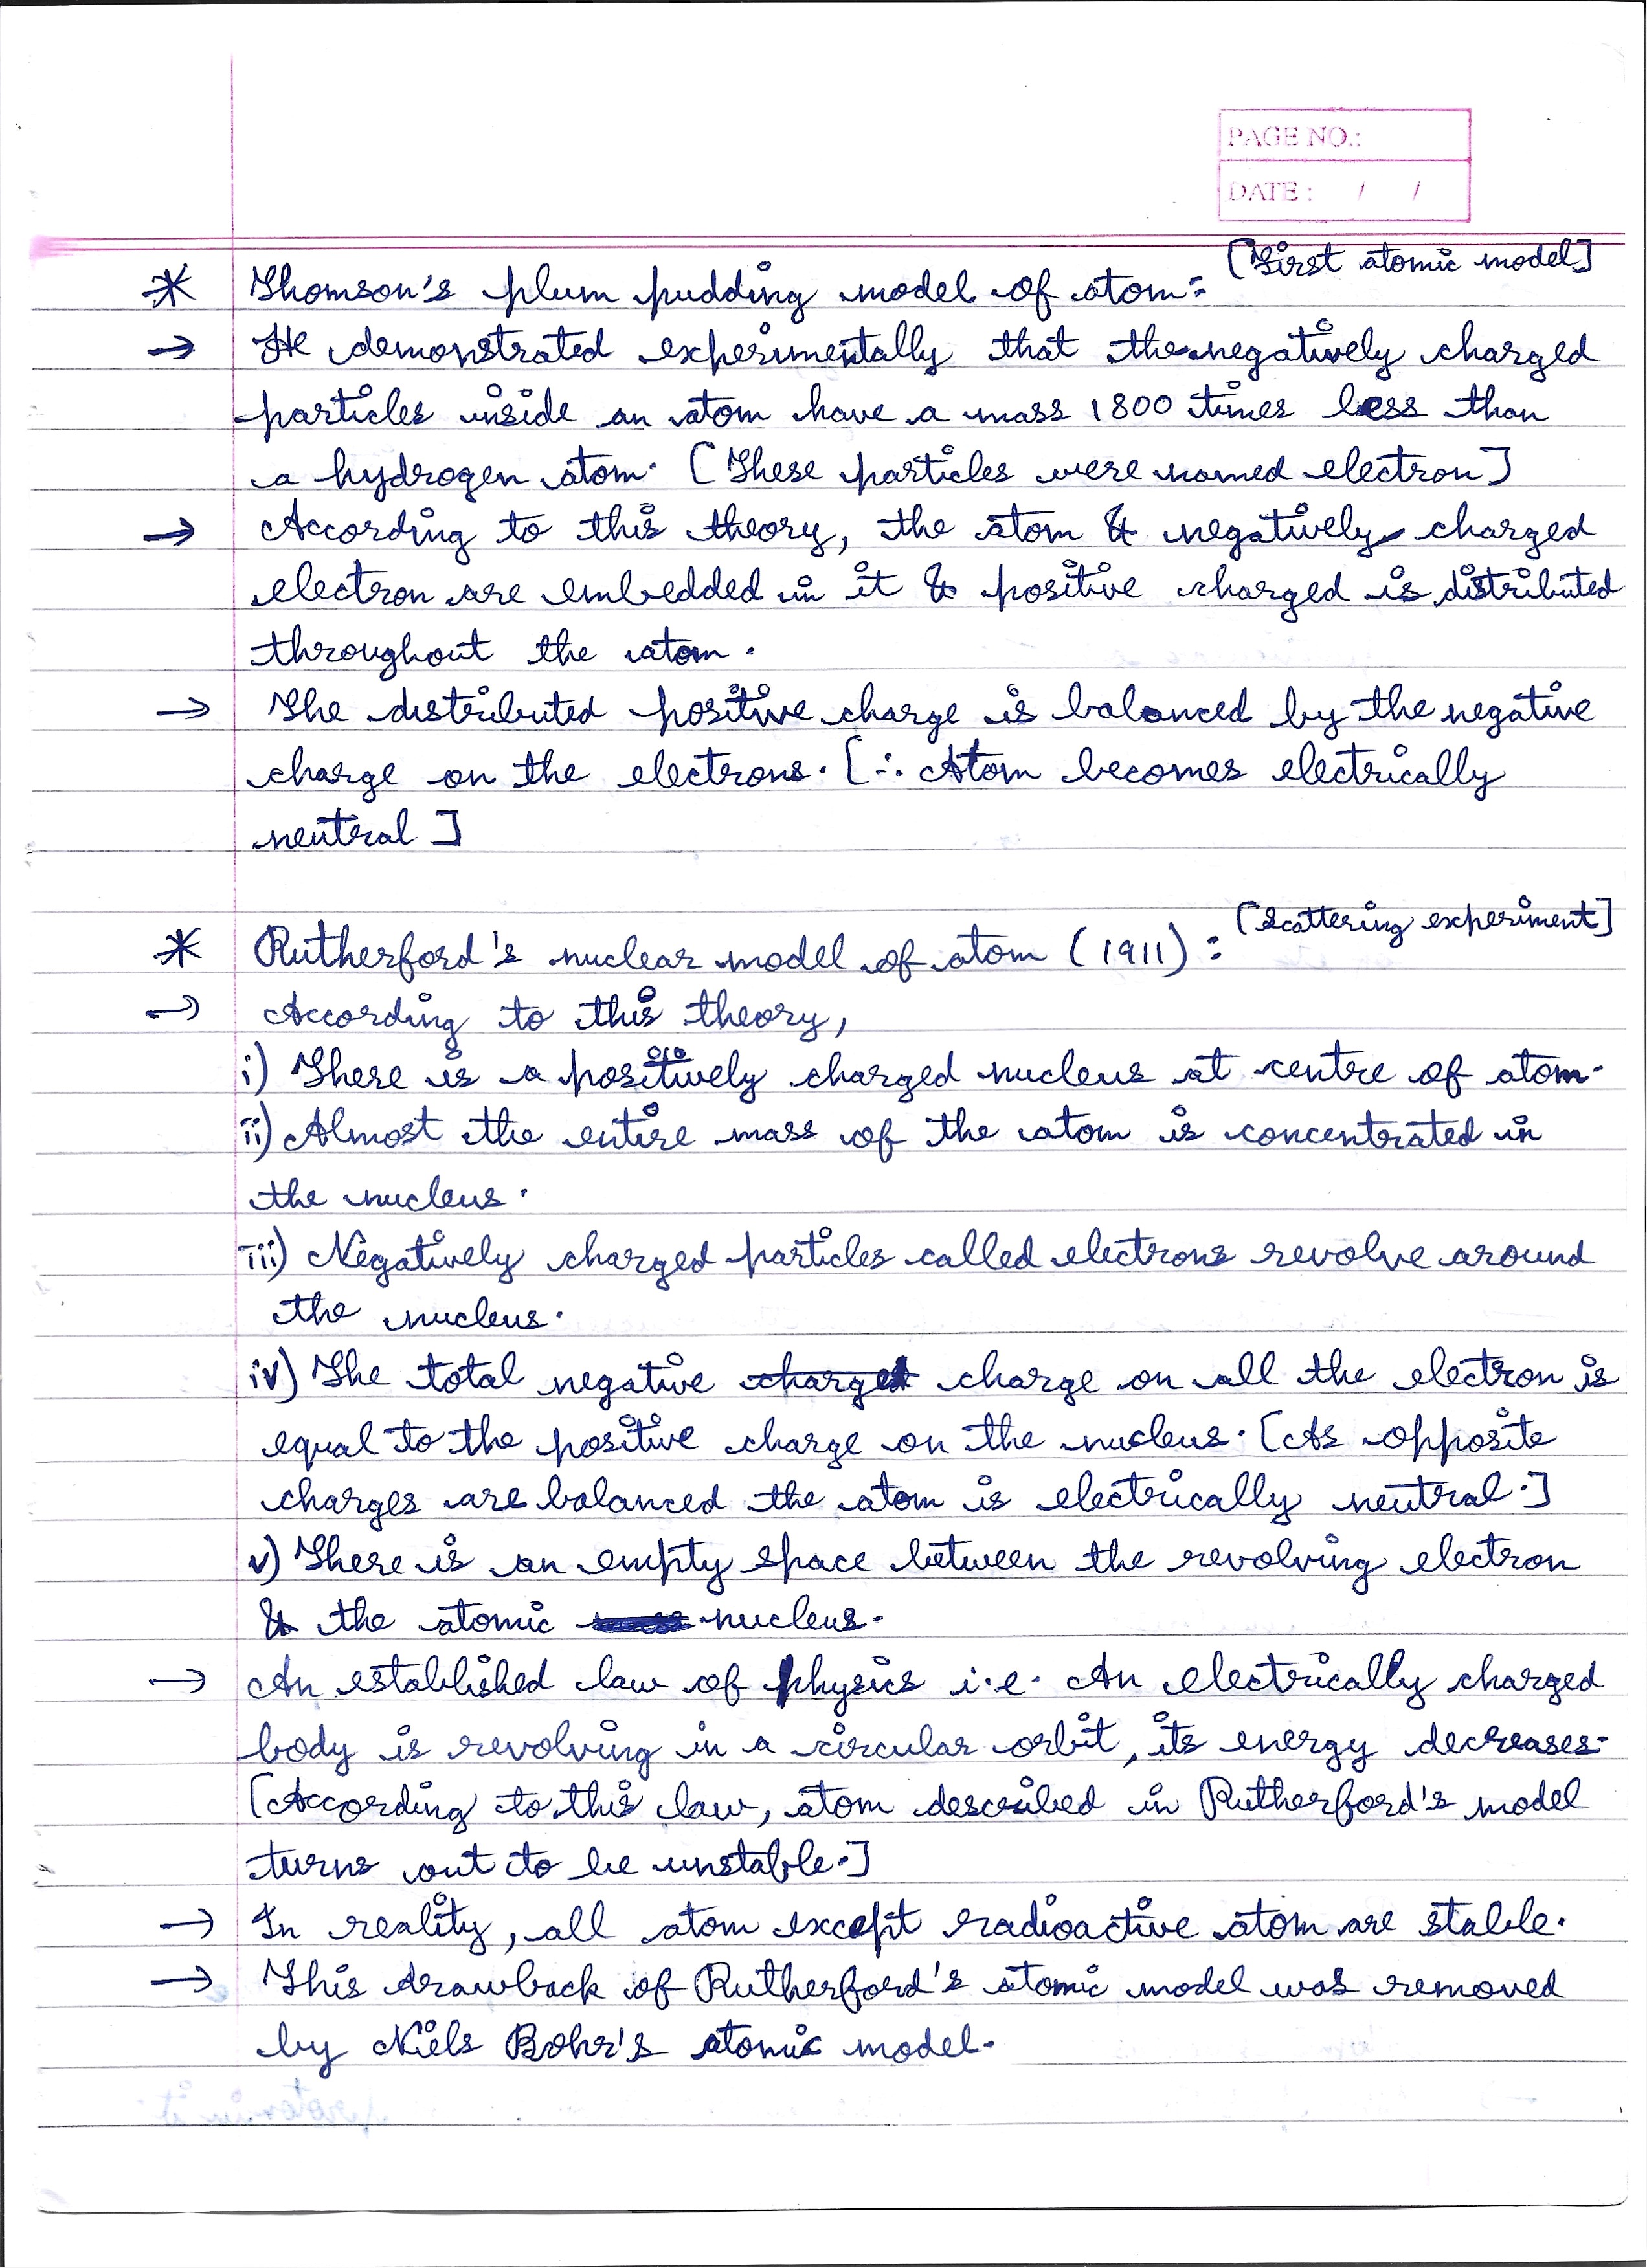 PAGE NO.:
DATE : / /
[First atomic model]
* Thomson's plum pudding model of atom:
→ He demonstrated experimentally that the negatively charged
particles inside an atom have a mass 1800 times less than
a hydrogen atom. [These particles were named electron]
→ According to this theory, the atom & negatively charged
electron are embedded in it & positive charged is distributed
throughout the atom.
→ The distributed positive charge is balanced by the negative
charge on the electrons. [∴ Atom becomes electrically
neutral ]
[Scattering experiment]
* Rutherford's nuclear model of atom (1911) :
→ According to this theory,
i) There is a positively charged nucleus at centre of atom.
ii) Almost the entire mass of the atom is concentrated in
the nucleus.
iii) Negatively charged particles called electrons revolve around
the nucleus.
iv) The total negative charge on all the electron is
equal to the positive charge on the nucleus. [As opposite
charges are balanced the atom is electrically neutral.]
v) There is an empty space between the revolving electron
& the atomic nucleus.
→ An established law of physics i.e. An electrically charged
body is revolving in a circular orbit, its energy decreases.
[According to this law, atom described in Rutherford's model
turns out to be unstable.]
→ In reality, all atom except radioactive atom are stable.
→ This drawback of Rutherford's atomic model was removed
by Niels Bohr's atomic model.